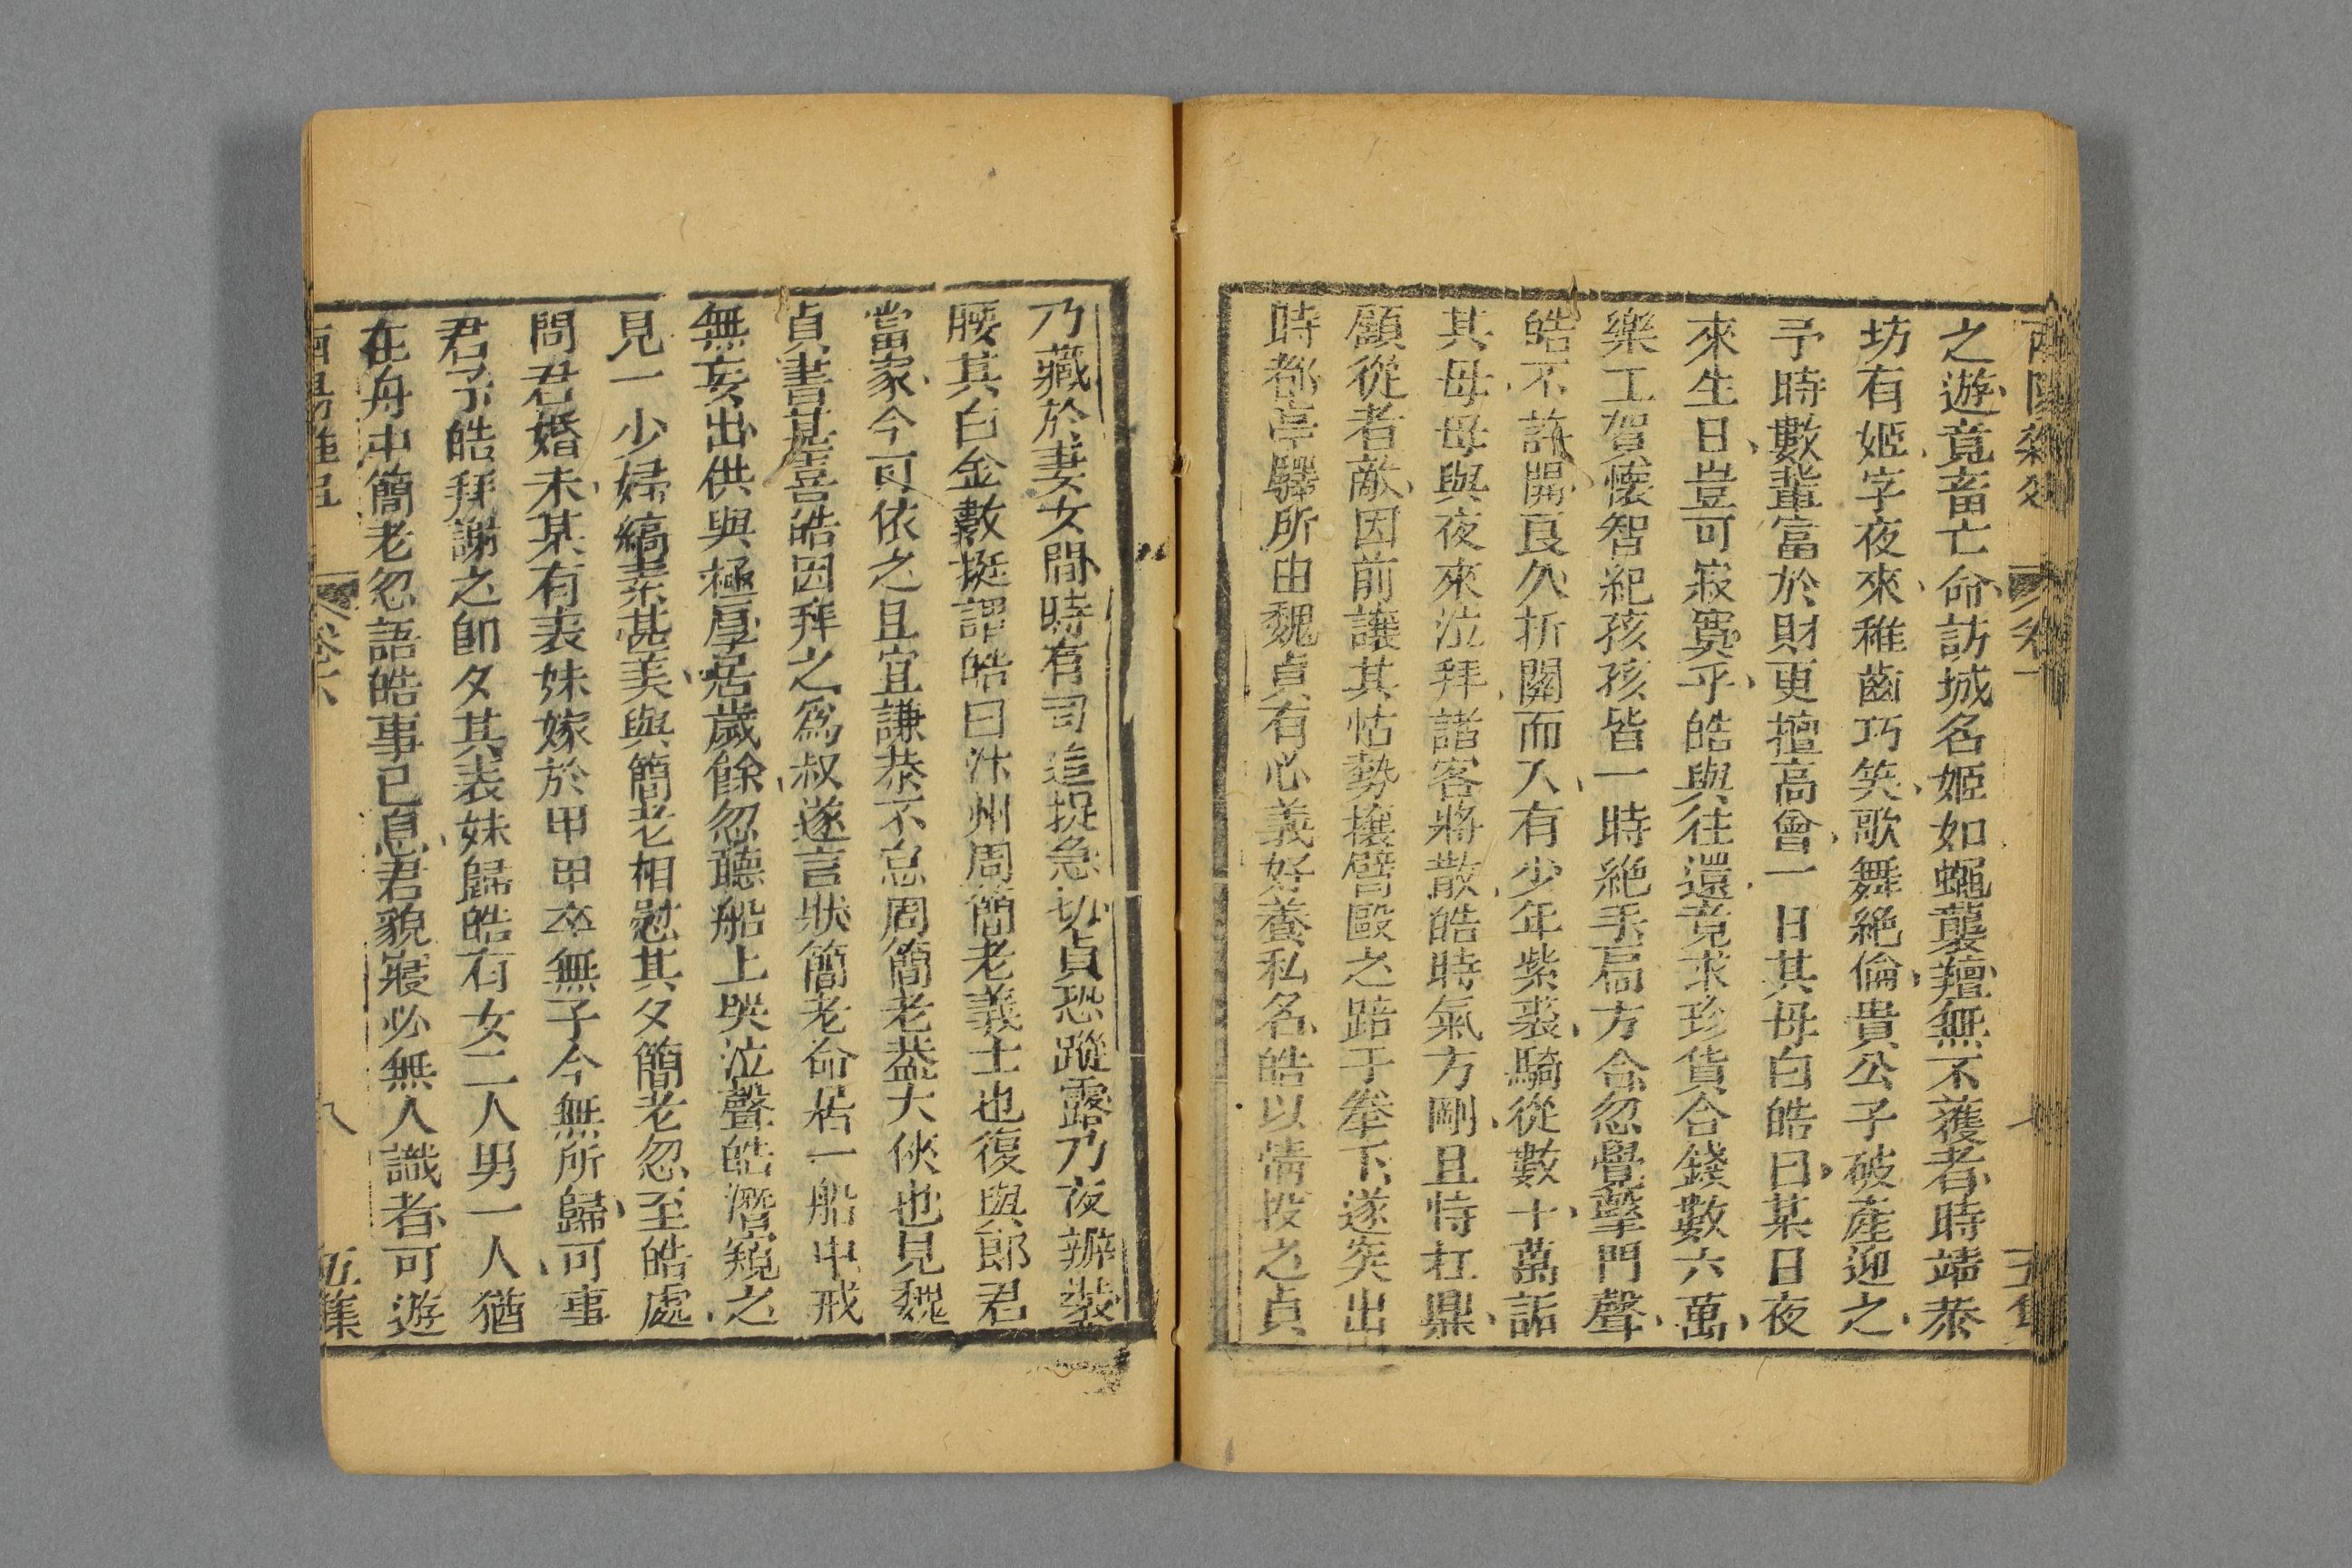 之遊竟畜亡命訪城名姬如蠅襲羶無不獲者時靖恭
坊有姬字夜來稚齒巧笑歌舞絶倫貴公子破產迎之
予時數輩富於財更擅高會一日其母白皓曰某日夜
來生日豈可寂寞乎皓與往還竟求珍貨合錢數六萬
樂工賀懷智紀孩孩皆一時絶手扃方合忽覺擊門聲
皓不許開良久折關而入有少年紫裘騎從數十萬詬
其母母與夜來泣拜諸客將散皓時氣方剛且恃扛鼎
顧從者敵因前讓其怙勢攘臂毆之踣于拳下遂突出
時都亭驛所由魏貞有心義好養私名皓以情投之貞
乃藏於妻女間時有司追捉急切貞恐蹤露乃夜辦裝
腰其白金數挺謂皓曰汴州周簡老義士也復與郎君
當家今可依之且宜謙恭不怠周簡老葢大俠也見魏
貞書甚喜皓因拜之爲叔遂言狀簡老命居一船中戒
無妄出供與極厚居歲餘忽聽船上哭泣聲皓潛窺之
見一少婦縞素甚美與簡老相慰其夕簡老忽至皓處
問君婚未某有表妹嫁於甲甲卒無子今無所歸可事
君子皓拜謝之卽夕其表妹歸皓有女二人男一人猶
在舟中簡老忽語皓事已息君貌寢必無人識者可遊
卷六
八
五集